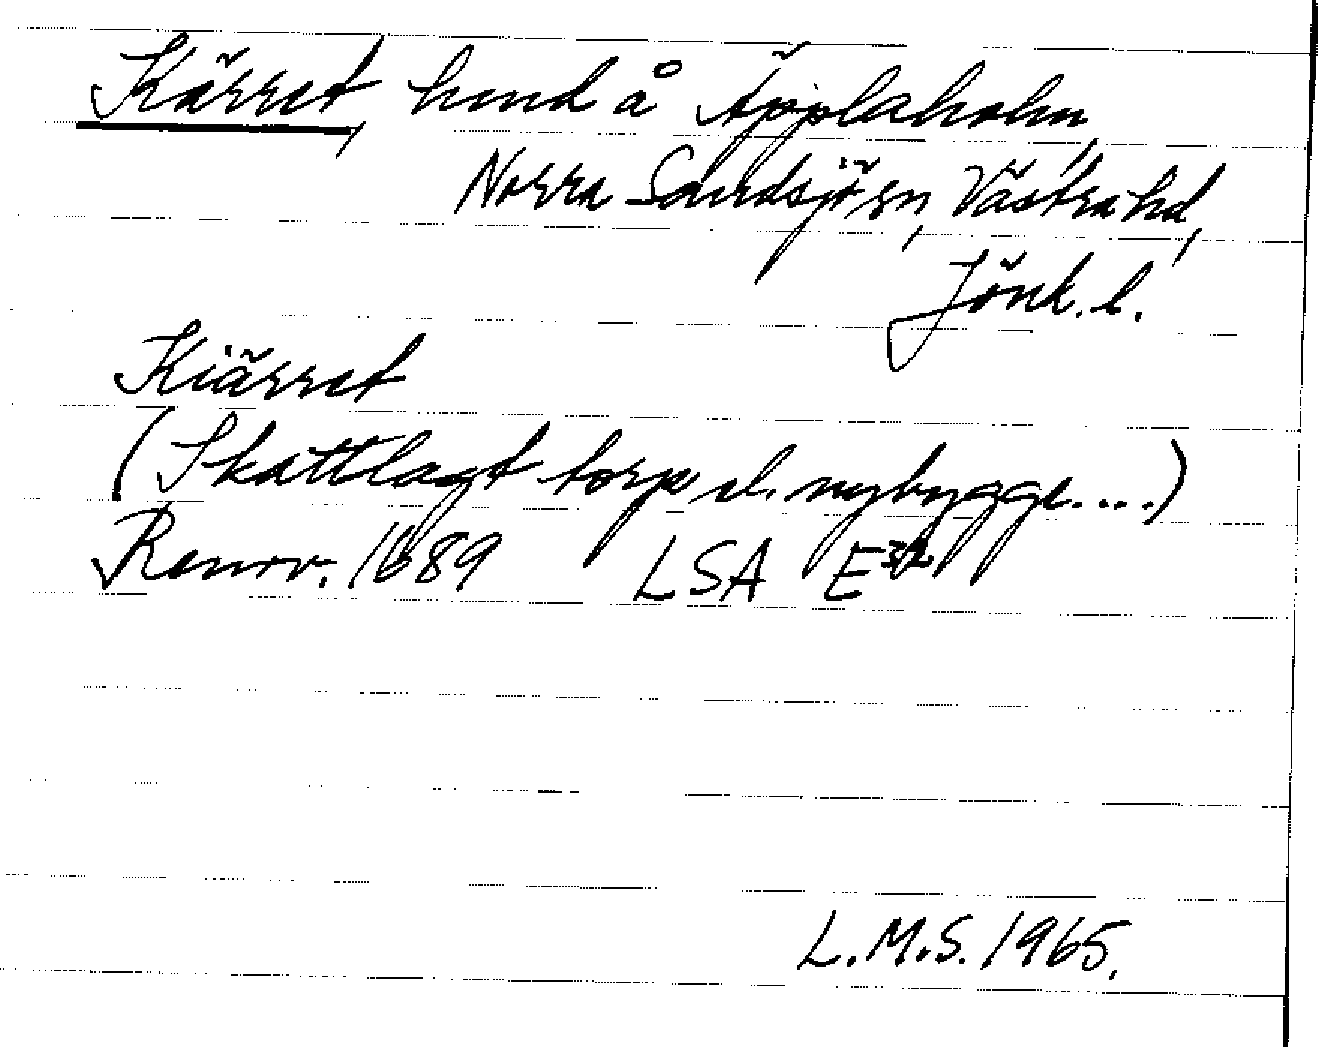 Kärret, hmd å Äpplaholm,
Norra Sandsjö sn, Västra hd,
Jönk. l.
Kiärret
(Skattlagt torp el. nybygge....)
Renov. 1689 LSA E
L.M.S. 1965.